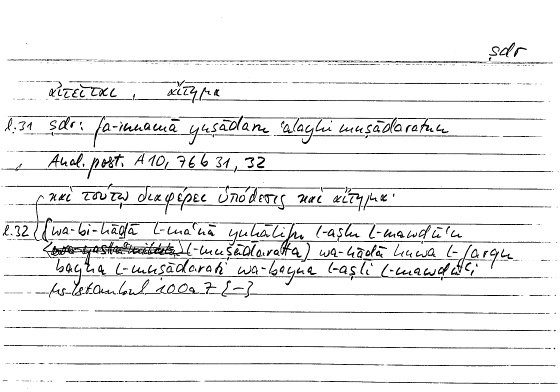 ṣdr
αἰτεῖται, αἴτημα
l.31 ṣdr: fa-innamā yuṣādaru ʿalayhi muṣādaratun
Anal. post. A 10, 76 b 31, 32
καὶ τούτῳ διαφέρει ὑπόθεσις καὶ αἴτημα·
l.32 (wa-bi-hāḏā l-maʿnā yuḫālifu l-aṣlu l-mawḍūʿu
l-muṣādarata) wa-hāḏā huwa l-farqu
bayna l-muṣādarati wa-bayna l-aṣli l-mawḍūʿi
Hs Istanbul 100a 7 [–]